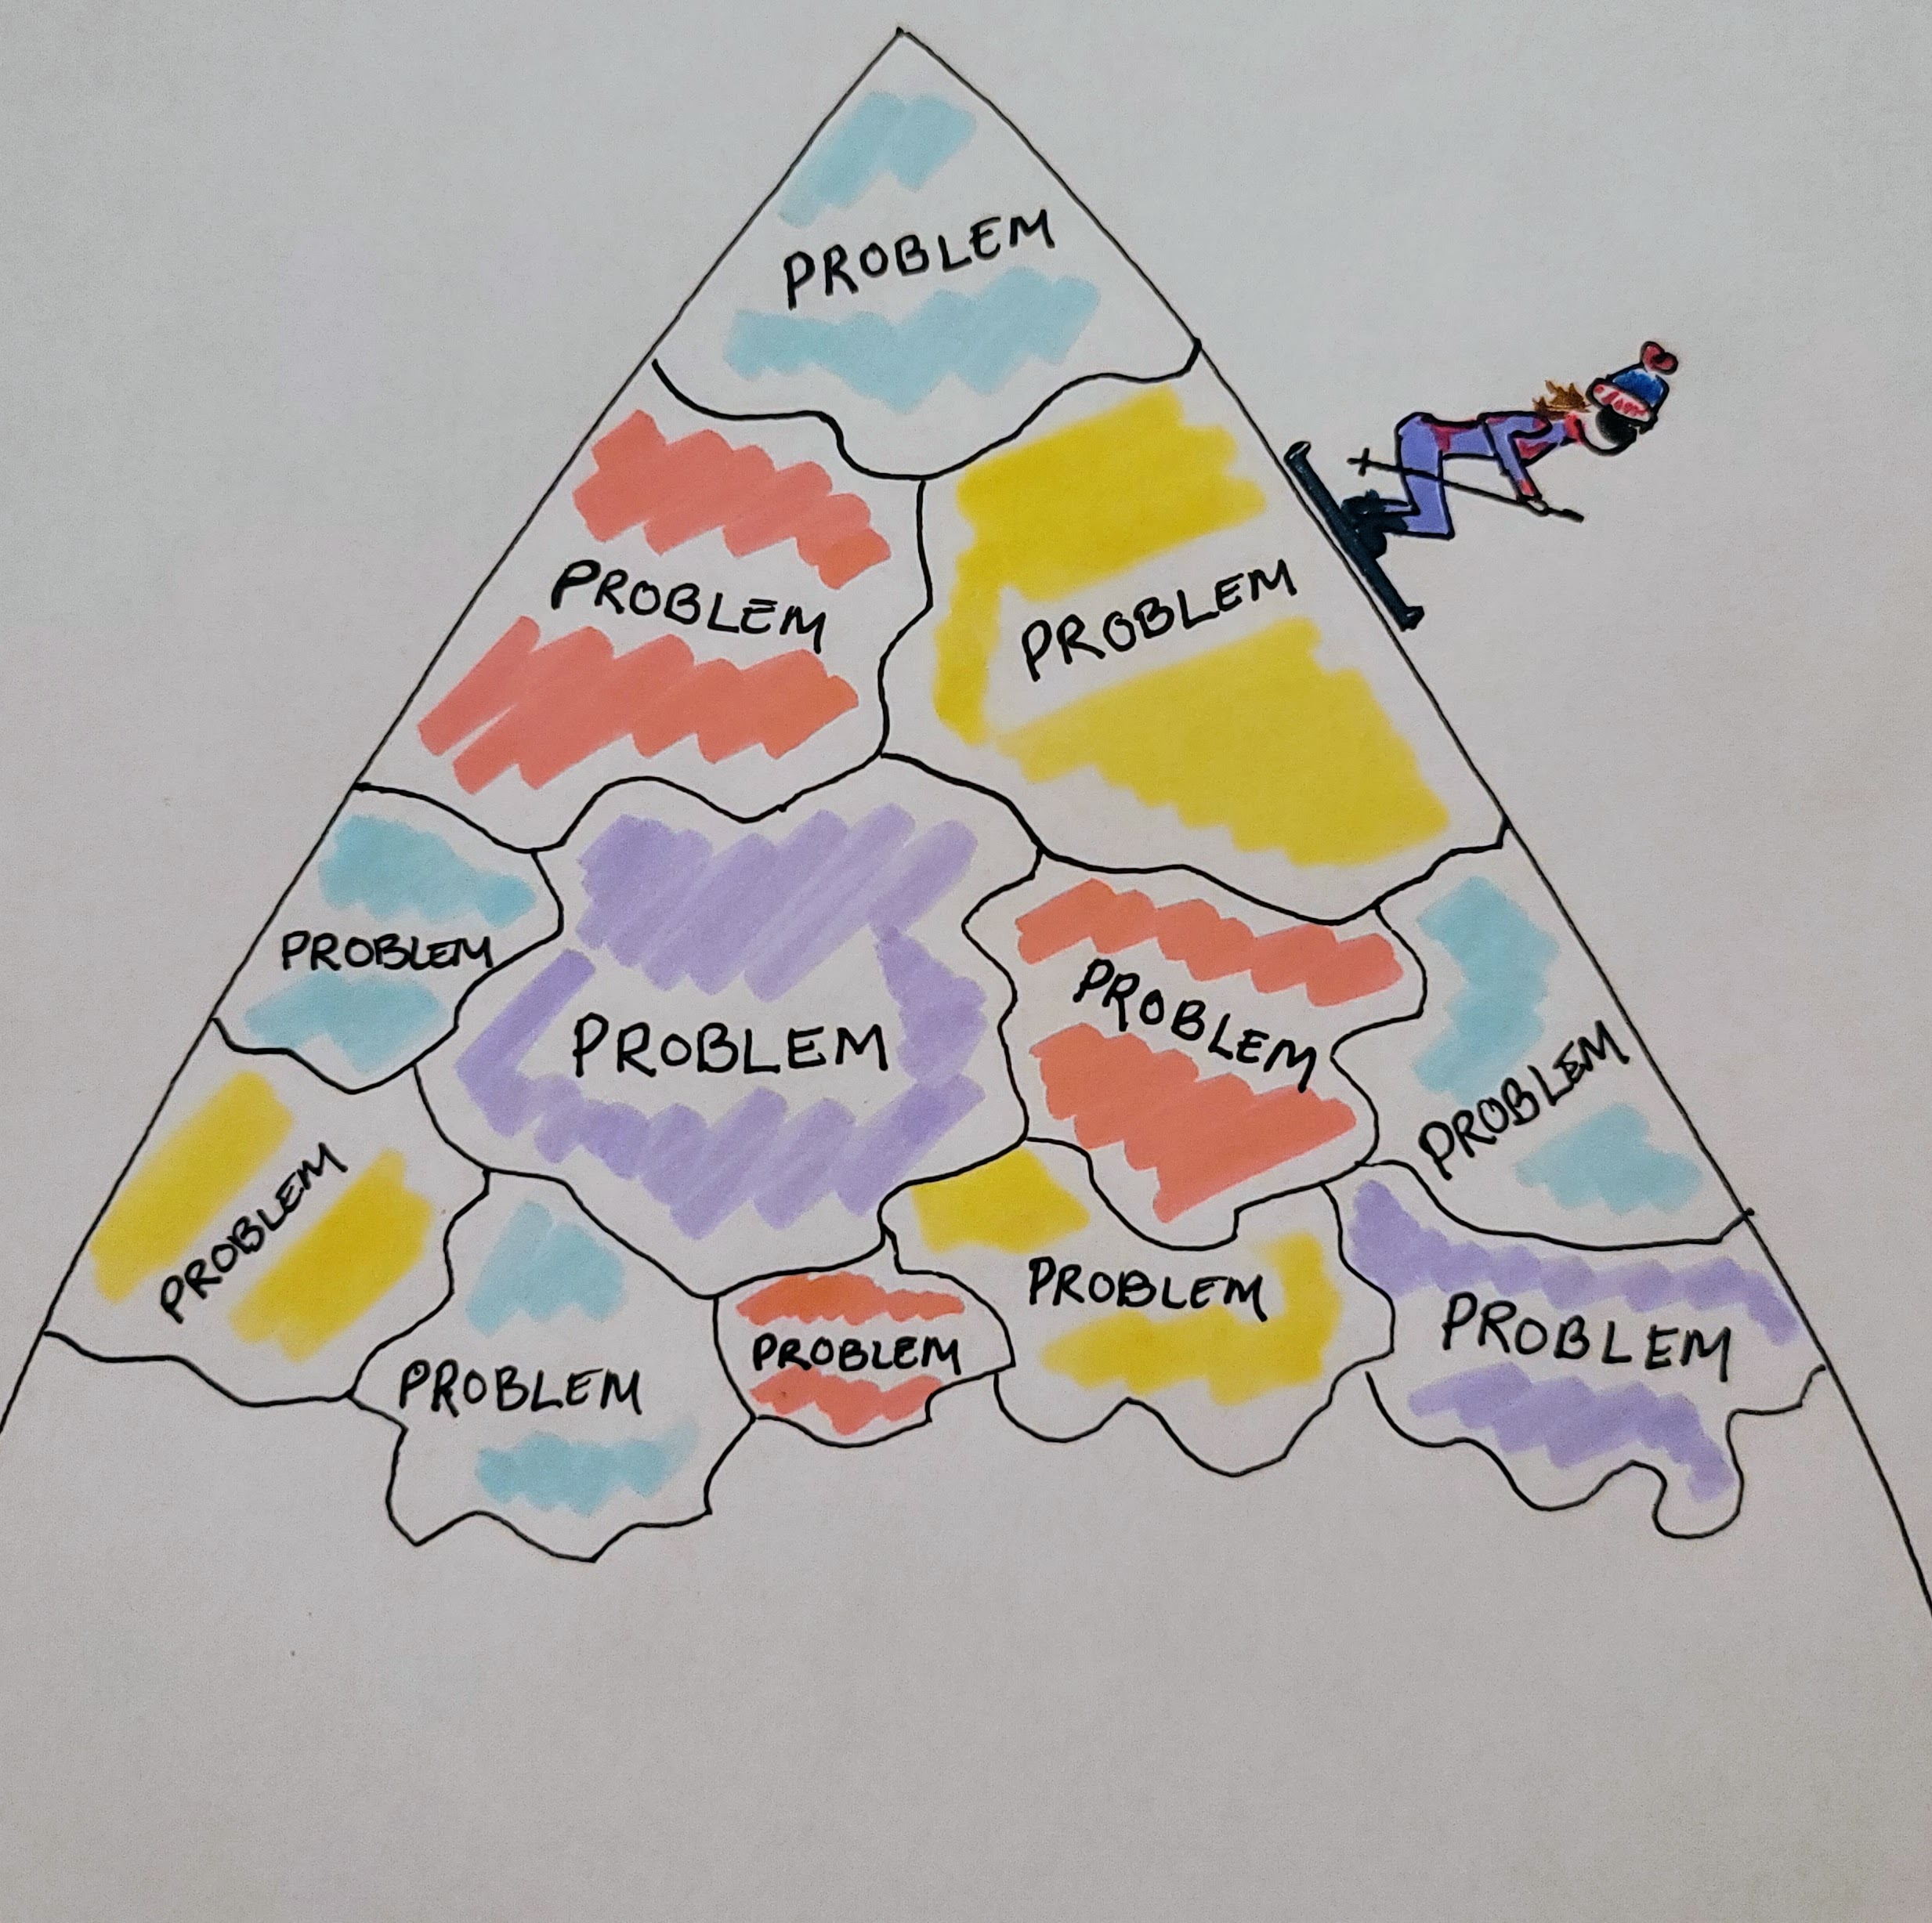 PROBLEM
PROBLEM
PROBLEM
PROBLEM
PROBLEM
PROBLEM
PROBLEM
PROBLEM
PROBLEM
PROBLEM
PROBLEM
PROBLEM